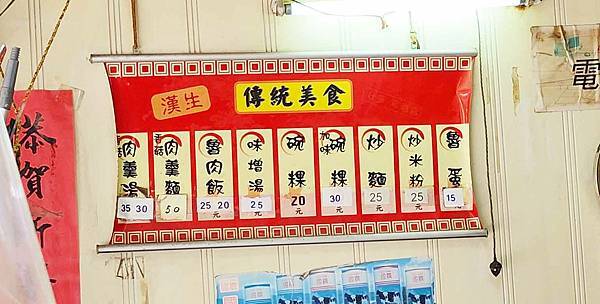 漢生
傳統美食
香菇肉羹湯 35 30
香菇肉羹麵 50
魯肉飯 25 20 元
味增湯 25 元
碗粿 20 元
加味碗粿 30 元
炒麵 25 元
炒米粉 25 元
魯蛋 15
恭賀新
電